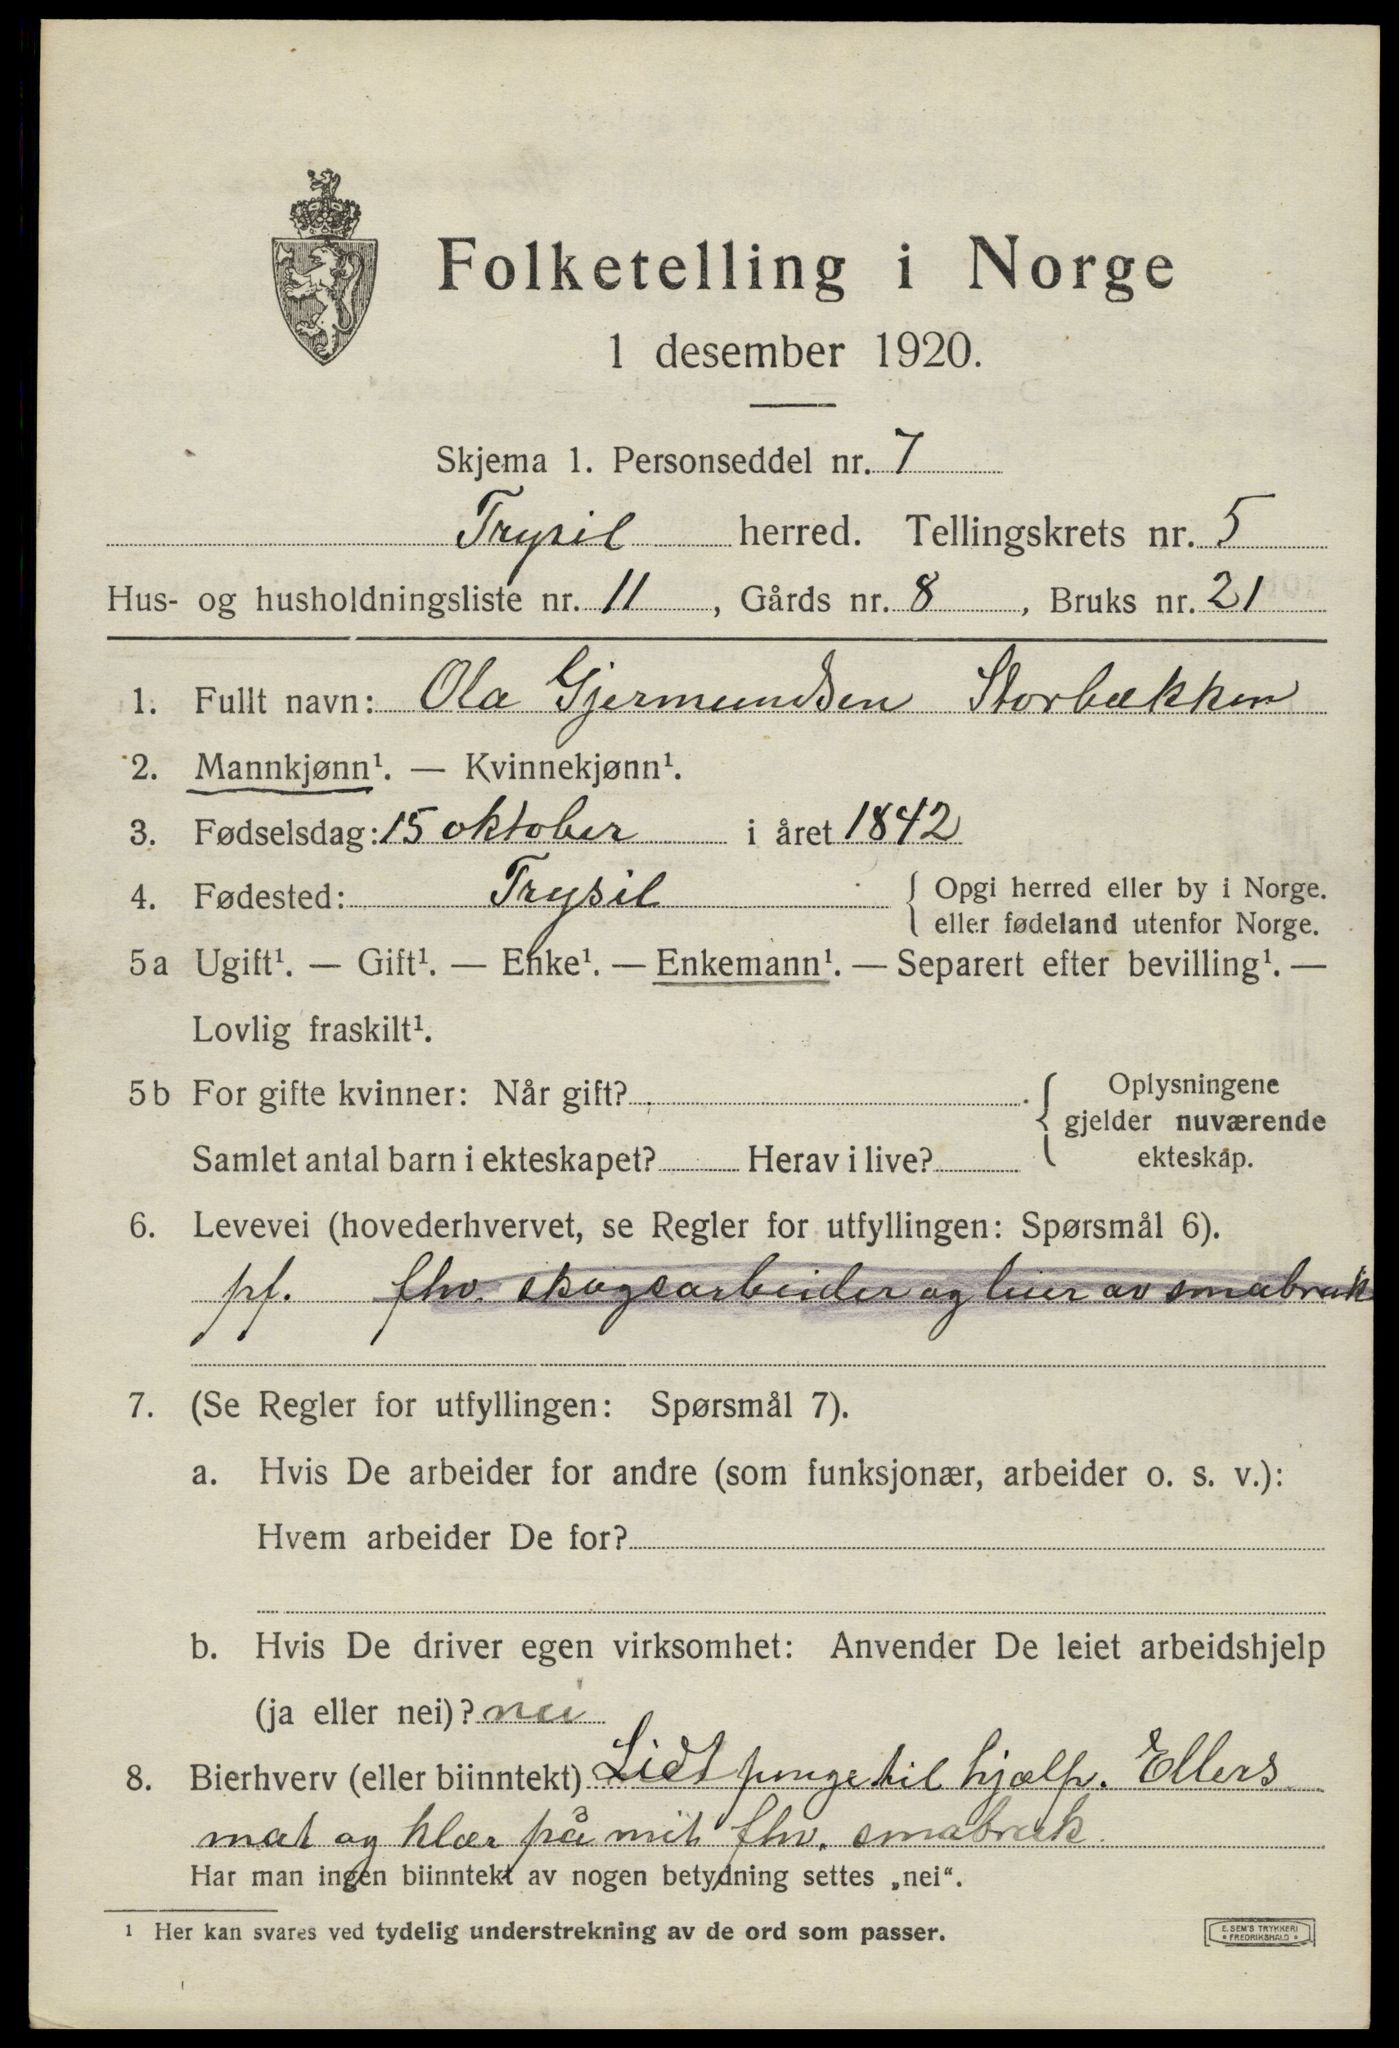 Folketelling i Norge
1 desember 1920.
Skjema 1. Personseddel nr. 7
Trysil herred. Tellingskrets nr. 5
Hus- og husholdningsliste nr. 11, Gårds nr. 8, Bruks nr. 21
1. Fullt navn: Ola Gjermundsen Storbækken
2. Mannkjønn¹. — Kvinnekjønn¹.
3. Fødselsdag: 15 oktober i året 1842
4. Fødested: Trysil { Opgi herred eller by i Norge.
eller fødeland utenfor Norge.
5a Ugift¹. — Gift¹. — Enke¹. — Enkemann¹. — Separert efter bevilling¹. —
Lovlig fraskilt¹.
5b For gifte kvinner: Når gift? { Oplysningene
gjelder nuværende
Samlet antal barn i ekteskapet? Herav i live? ekteskap.
6. Levevei (hovederhvervet, se Regler for utfyllingen: Spørsmål 6).
pf. fhv. skogsarbeider og eier av smabruk
7. (Se Regler for utfyllingen: Spørsmål 7).
a. Hvis De arbeider for andre (som funksjonær, arbeider o. s. v.):
Hvem arbeider De for?
b. Hvis De driver egen virksomhet: Anvender De leiet arbeidshjelp
(ja eller nei)? nei
8. Bierhverv (eller biinntekt) Lidt penge til hjælp. Ellers
mat og klær på mit fhv. smabruk.
Har man ingen biinntekt av nogen betydning settes „nei“.
¹ Her kan svares ved tydelig understrekning av de ord som passer.
E. SEM'S TRYKKERI
FREDRIKSHALD